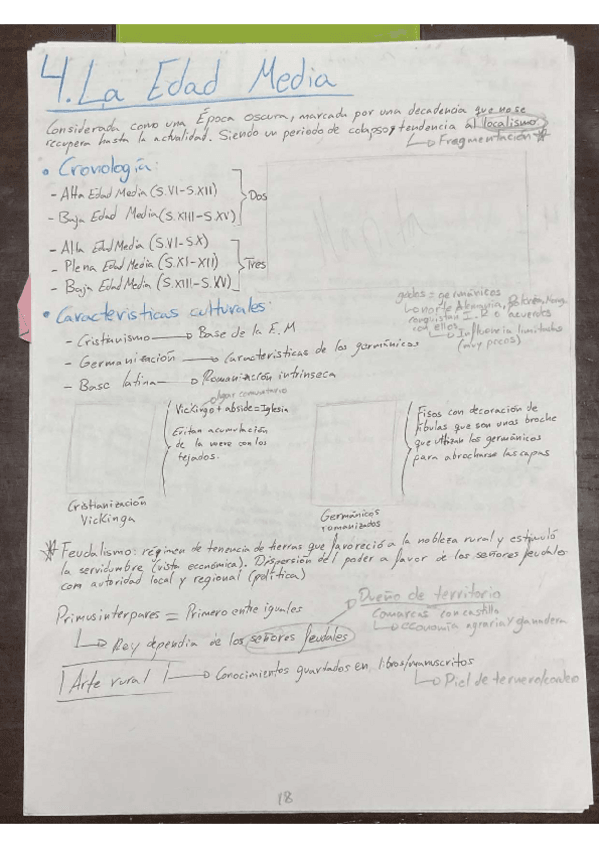 4. La Edad Media
Considerada como una Época oscura, marcada por una decadencia que no se
recupera hasta la actualidad. Siendo un periodo de colapso y tendencia al localismo
Fragmentación
• Cronología:
- Alta Edad Media (S.VI-S.XII)
- Baja Edad Media (S.XIII-S.XV)
Dos
- Alta Edad Media (S.VI-S.X)
- Plena Edad Media (S.XI-XII)
- Baja Edad Media (S.XIII-S.XV)
Tres
• Características culturales:
godos = germánicos
norte Alemania,
conquistan I.R o acuerdos
con ellos
Influencia limitada
(muy pocos)
- Cristianismo → Base de la E.M
- Germanización → Características de los germánicos
- Base latina → Romanización intrínseca
lugar comunitario
Vickingo + abside = Iglesia
Evitan acumulación
de la nieve con los
tejados.
Cristianización
Vickinga
Fisos con decoración de
fíbulas que son unos broche
que utilizan los germánicos
para abrocharse las capas
Germánicos
romanizados
* Feudalismo: régimen de tenencia de tierras que favoreció a la nobleza rural y estimuló
la servidumbre (vista económica). Dispersión del poder a favor de los señores feudales
com autoridad local y regional (política)
Primus interpares = Primero entre iguales
Dueño de territorio
Comarcas con castillo
economía agraria y ganadera
Rey dependía de los señores feudales
¡Arte rural! → Conocimientos guardados en libros/manuscritos
Piel de ternero/cordero
18